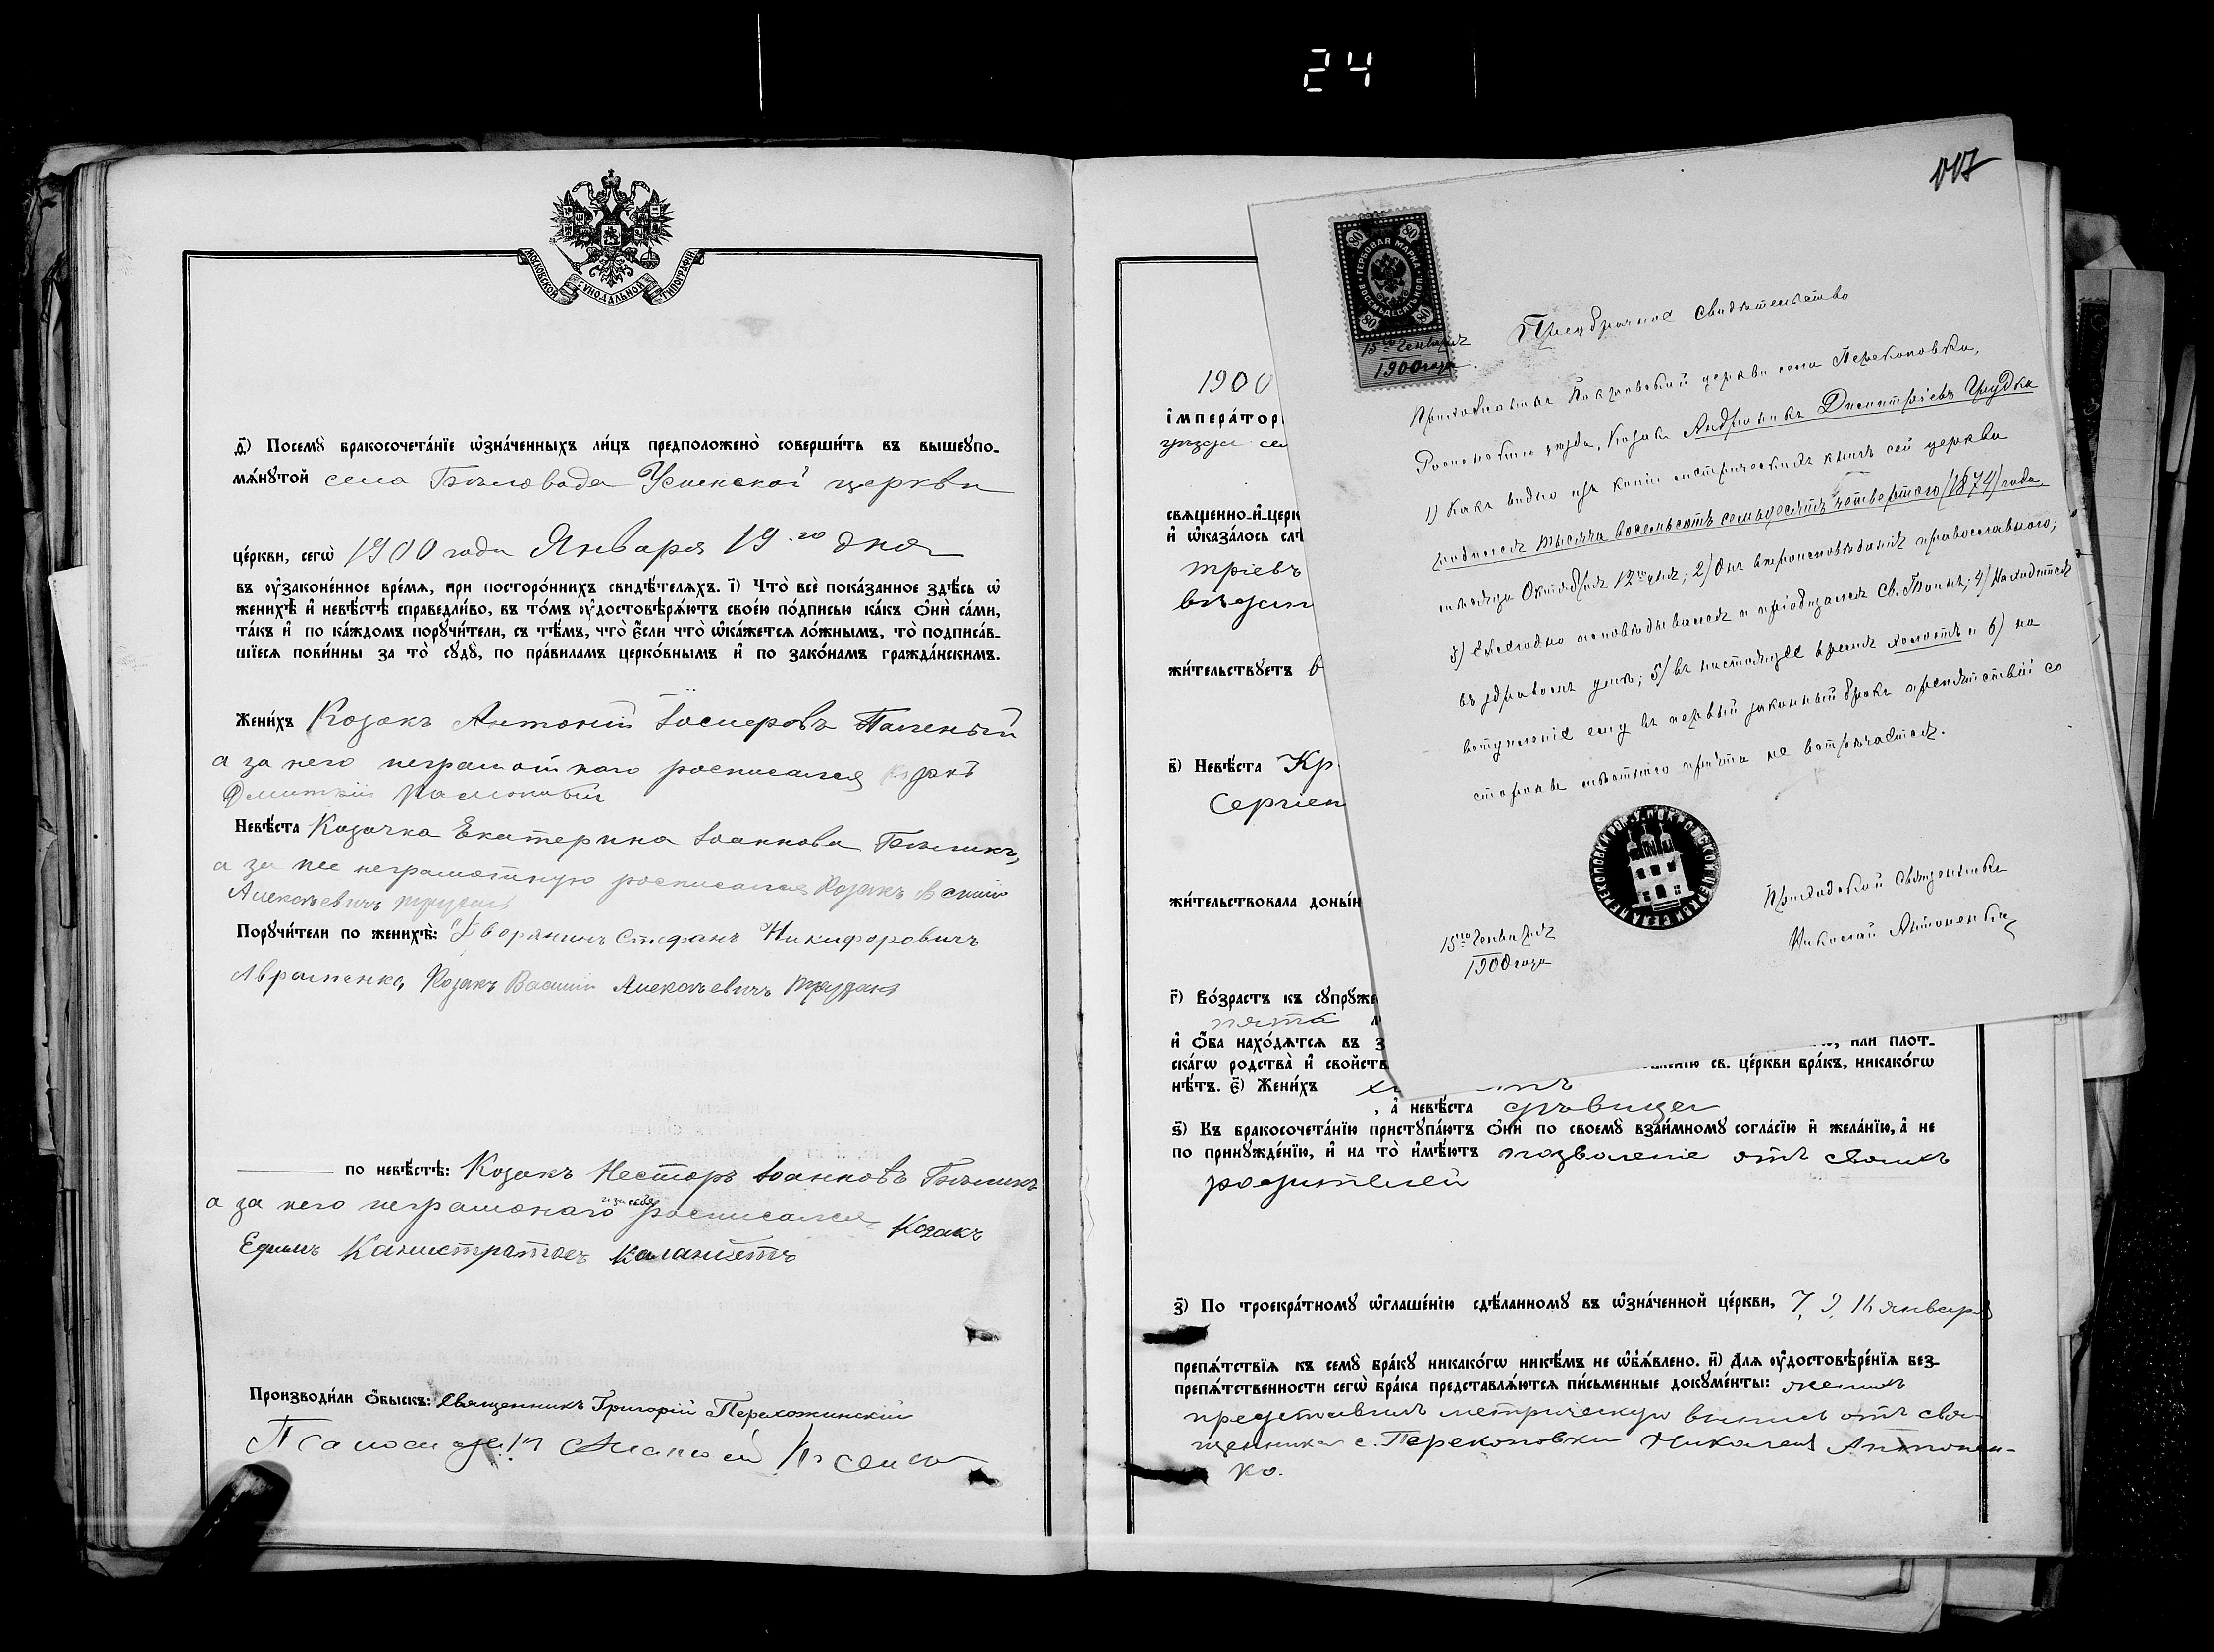 24
МОСКОВСКОЙ СѴНОДАЛЬНОЙ ТИПОГРАФІИ
д҃) Посемꙋ̀ бракосочета́нїе ѡ҆зна́ченныхъ ли́цъ предположено̀ соверши́ть въ вышеꙋпо-
мѧ́нꙋтой села Бѣловода Успенской церкви
це́ркви, сегѡ̀ 1900 года Января 19го дня
въ ᲂу҆законе́нное вре́мѧ, при посторо́ннихъ свидѣ́телѧхъ. і҃) Что̀ всѐ пока́занное здѣ́сь ѡ҆
женихѣ̀ и҆ невѣ́стѣ справедли́во, въ то́мъ ᲂу҆достовѣрѧ́ютъ свое́ю по́дписью ка́къ ѻ҆нѝ са́ми,
та́къ и҆ по ка́ждомъ порꙋчи́тели, съ тѣ́мъ, что̀ є҆́сли что̀ ѡ҆ка́жетсѧ ло́жнымъ, то̀ подписа́в-
шїесѧ пови́нны за то̀ сꙋдꙋ̀, по пра́виламъ церко́внымъ и҆ по зако́намъ гражда́нскимъ.
Жени́хъ Козакъ Антоній Іосифовъ
а за него неграмотнаго росписался козакъ
Дмитрій
Невѣ́ста Козачка Екатерина Іоаннова Бѣликъ,
а за нее неграмотную росписался Козакъ Василій
Алексѣевичъ
Порꙋчи́тели по женихѣ̀: Дворянинъ Стефанъ Никифоровичъ
Авраменко, Козакъ Василій Алексѣевичъ
по невѣ́стѣ: Козакъ Несторъ Іоанновъ Бѣликъ
а за него неграмотнаго и за себя росписался Козакъ
Ефимъ Калистратовъ
Производи́ли ѻ҆́быскъ: Священникъ Григорій
1900
і҆мпера́тор
уѣзда се
свѧщенно-и҆-церк
и҆ ѡ҆каза́лось слѣ
тріевъ
жи́тельствꙋетъ в
в҃) Невѣ́ста Кр
Сергіен
жи́тельствовала доны́н
г҃) Во́зрастъ къ сꙋпрꙋже
пяти
и҆ ѻ҆́ба нахо́дѧтсѧ въ з , или плот-
ска́гѡ родства̀ и҆ свойств св. це́ркви бра́къ, никако́гѡ
нѣ́тъ. є҃) Жени́хъ
, а҆ невѣ́ста дѣвица
ѕ҃) Къ бракосочета́нїю пристꙋпа́ютъ ѻ҆нѝ по своемꙋ̀ взаи́мномꙋ согла́сїю и҆ жела́нїю, а҆ не
по принꙋжде́нїю, и҆ на то̀ и҆мѣ́ютъ позволеніе отъ своихъ
родителей
з҃) По троекра́тномꙋ ѡ҆глаше́нїю сдѣ́ланномꙋ въ ѡ҆зна́ченной це́ркви, 7, 9, 16 января
препѧ́тствїѧ къ семꙋ̀ бра́кꙋ никако́гѡ никѣ́мъ не ѡ҆б̾ѧ́влено. и҃) Длѧ ᲂу҆достовѣре́нїѧ без-
препѧ́тственности сегѡ̀ бра́ка представлѧ́ютсѧ пи́сьменные докꙋме́нты: женихъ
представилъ метрическую выпись отъ свя-
щенника с. Перекоповки Николая Антонен-
ко.
107
ГЕРБОВАЯ МАРКА
ВОСЕМЬДЕСЯТЪ КОП.
80
80
80
80
15го Генваря
1900 года.
Предбрачное свидѣтельство
Прихожанинъ Покровской церкви села Перекоповки,
Роменского уѣзда, Козакъ Андроникъ Димитріевъ Грудка
1) Какъ видно изъ копіи метрическихъ книгъ сей церкви
родился тысяча восемьсотъ семьдесятъ четвертаго /1874/ года,
мѣсяца Октября 12го дня; 2) Онъ вѣроисповѣданія православного;
3) Ежегодно исповѣдывался и пріобщался Св. Таинъ; 4) Находится
въ здравомъ умѣ; 5) въ настоящее время холостъ и 6) на
вступленіе ему въ первый законный бракъ препятствій со
стороны мѣстного причта не встрѣчается.
ПЕРЕКОПОВКИ РОМ. У. ПОКРОВСКОЙ ЦЕРКВИ СЕЛА
Приходской Священникъ
Николай Антоненко
15го Генваря
1900 года